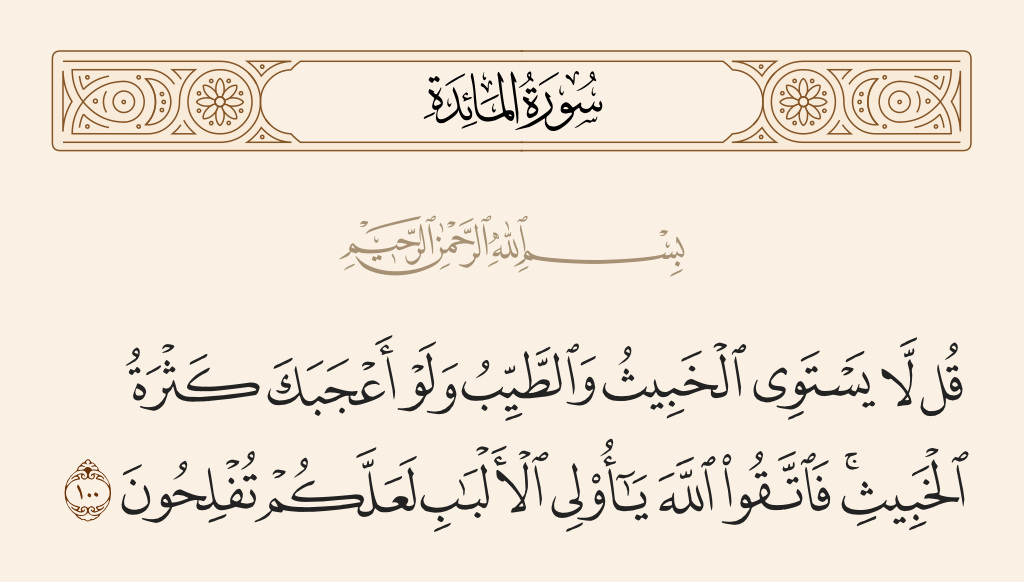 سُورَةُ المَائِدَةِ
بِسْمِ ٱللَّهِ ٱلرَّحْمَٰنِ ٱلرَّحِيمِ
قُل لَّا يَسْتَوِى ٱلْخَبِيثُ وَٱلطَّيِّبُ وَلَوْ أَعْجَبَكَ كَثْرَةُ
ٱلْخَبِيثِ ۚ فَٱتَّقُوا۟ ٱللَّهَ يَـٰٓأُو۟لِى ٱلْأَلْبَـٰبِ لَعَلَّكُمْ تُفْلِحُونَ ١٠٠